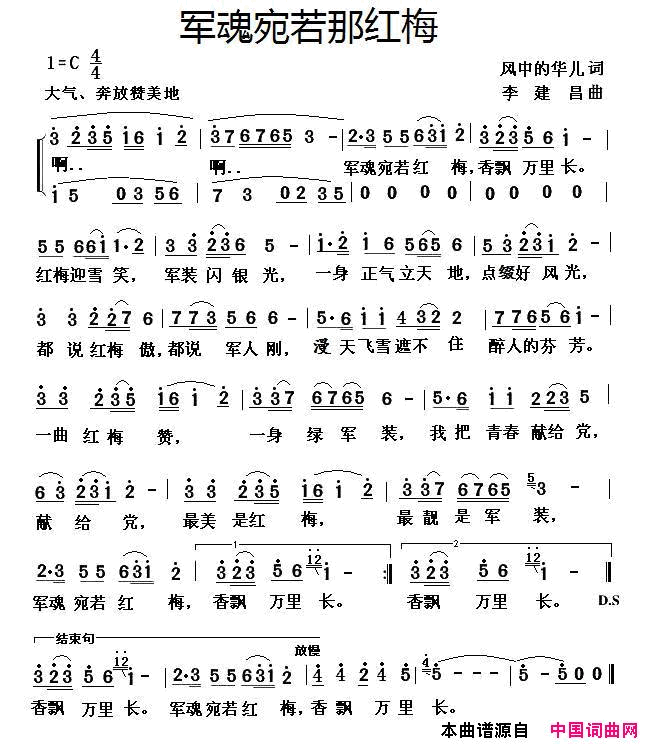 军魂宛若那红梅
1=C 4/4
风中的华儿词
大气、奔放赞美地
李建昌曲
3 2 3 5 1 6 1 2 | 3 7 6 7 6 5 3 - | 2·3 5 5 6 3 1 2 | 3 2 3 5 5 1 - |
啊.. 啊.. 军魂宛若红 梅,香飘 万里长。
1 5 0 3 5 6 | 7 3 0 2 3 5 | 0 0 0 0 | 0 0 0 0 |
5 5 6 6 1 1·2 | 3 3 2 3 6 5 - | 1·2 1 6 5 6 5 6 | 5·5 3 2 3 1 2 - |
红梅迎雪 笑, 军装 闪 银 光, 一身 正气立天 地,点缀好 风光,
3 3 2 2 7 6 | 7 7 3 5 6 6 - | 5·6 1 1 4 3 2 2 | 7 7 6 5 6 5 - |
都 说 红梅 傲,都说 军人 刚, 漫 天飞雪遮不 住 醉人的芬 芳。
3 3 2 3 5 1 6 1 2 | 3 3 7 6 7 6 5 6 - | 5·6 1 1 2 2 3 5 |
一曲 红 梅 赞, 一身 绿 军 装, 我 把 青春 献给 党,
6 3 2 3 1 2 - | 3 3 2 3 5 1 6 1 2 | 3 3 7 6 7 6 5 5 3 - |
献 给 党, 最美 是红 梅, 最 靓 是 军 装,
2·3 5 5 6 3 1 2 | 1 3 2 3 5 6 1 2 1 - :| 2 3 2 3 5 6 1 2 1 - ||
军魂 宛若 红 梅, 香飘 万里 长。 香飘 万里 长。 D.S
结束句 放慢
3 2 3 5 6 1 2 1 - | 2·3 5 5 6 3 1 2 | 4 4 4 2 4 | 4 5 - - - | 5 - 5 0 0 ||
香飘 万里 长。 军魂宛若红 梅,香 飘 万 里 长。
本曲谱源自 中国词曲网